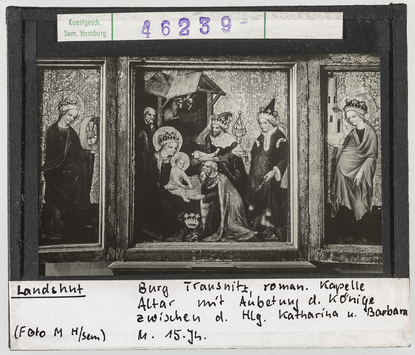 Kunstgesch.
Sem. Hamburg
46239-
Landshut
(Foto M H/Sem)
Burg Trausnitz, roman. Kapelle
Altar mit Anbetung d. Könige
zwischen d. Hlg. Katharina u. Barbara
M. 15.Jh.